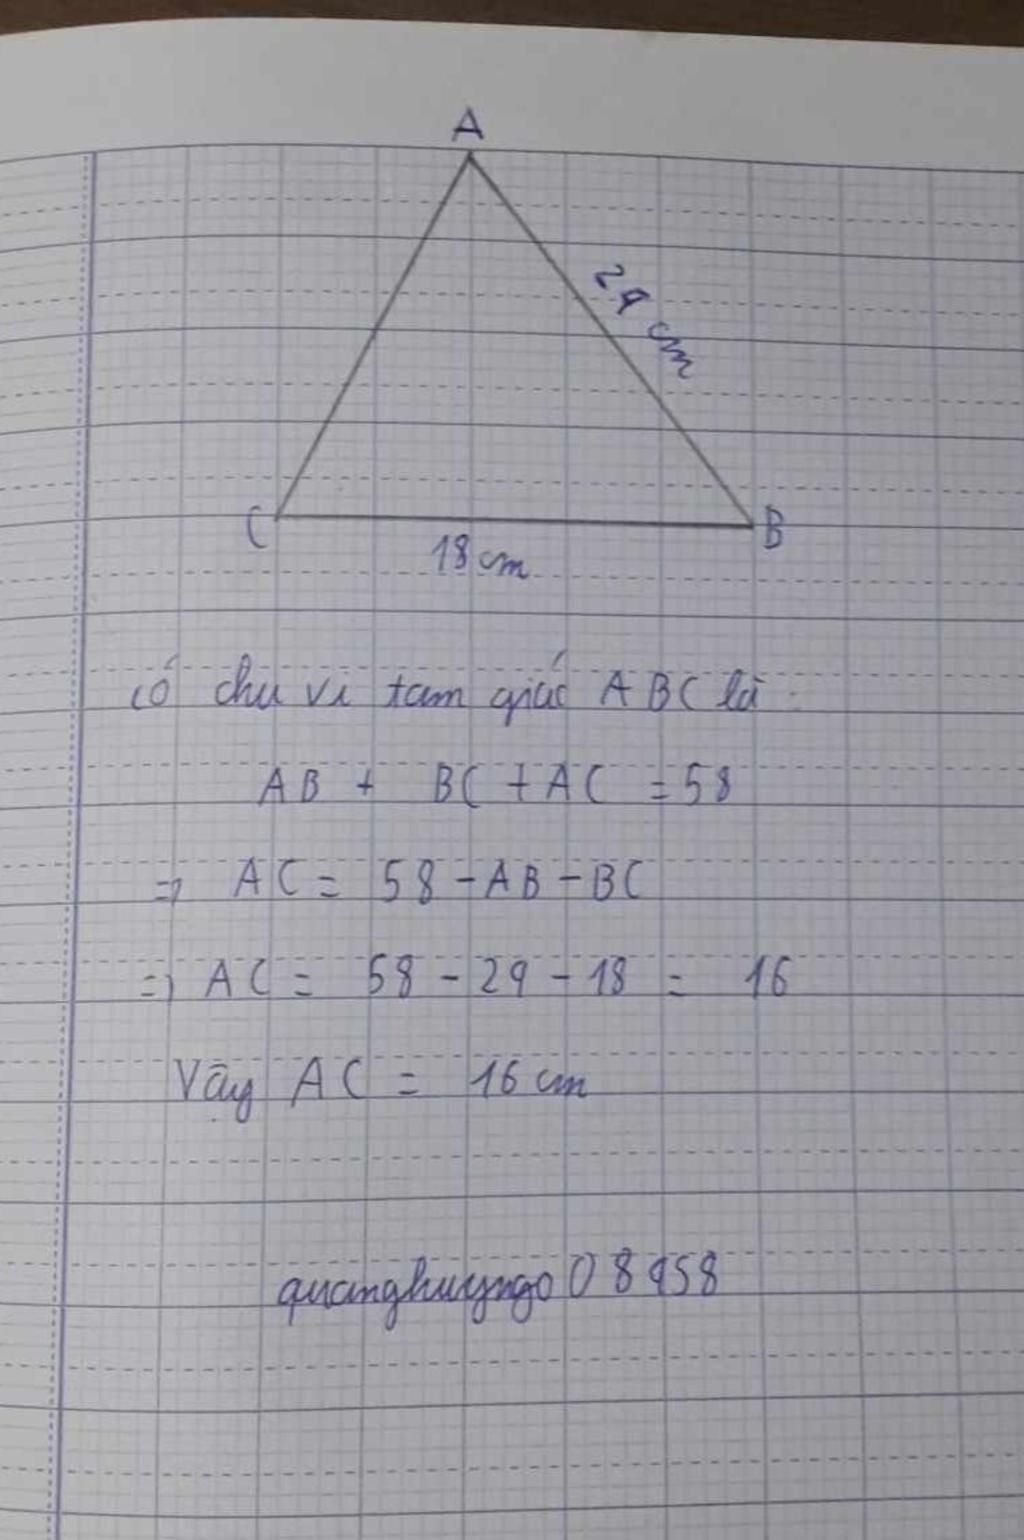 A
24 cm
C
B
18 cm
Có chu vi tam giác ABC là :
AB + BC + AC = 58
=> AC = 58 - AB - BC
=> AC = 58 - 24 - 18 = 16
Vậy AC = 16 cm
quanghuyngo08458